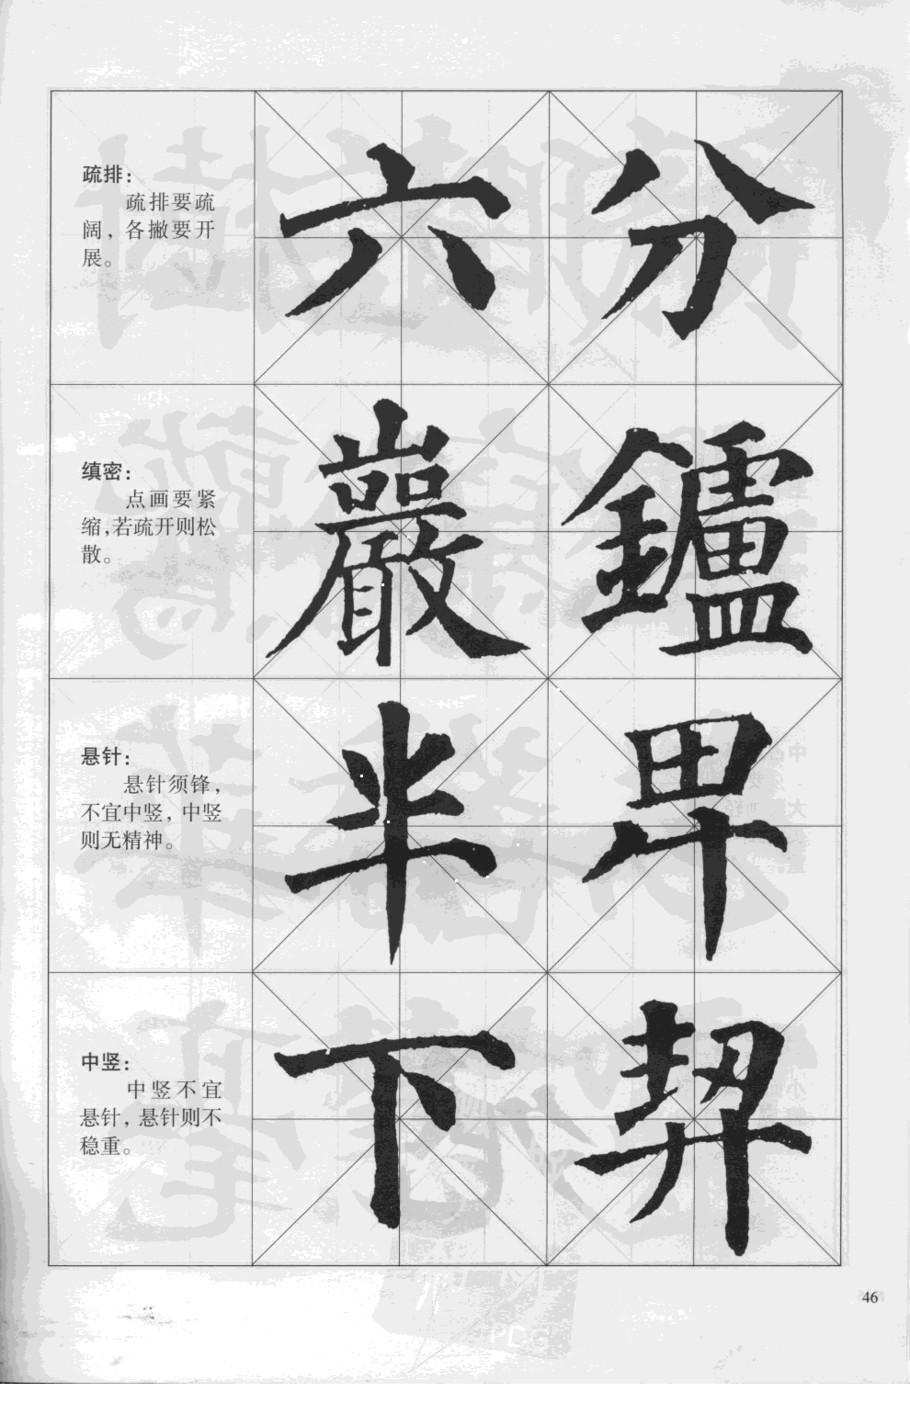 疏排：
疏排要疏
阔，各撇要开
展。
六 分
缜密：
点画要紧
缩，若疏开则松
散。
巖 鑪
悬针：
悬针须锋，
不宜中竖，中竖
则无精神。
半 畀
中竖：
中竖不宜
悬针，悬针则不
稳重。
下
46